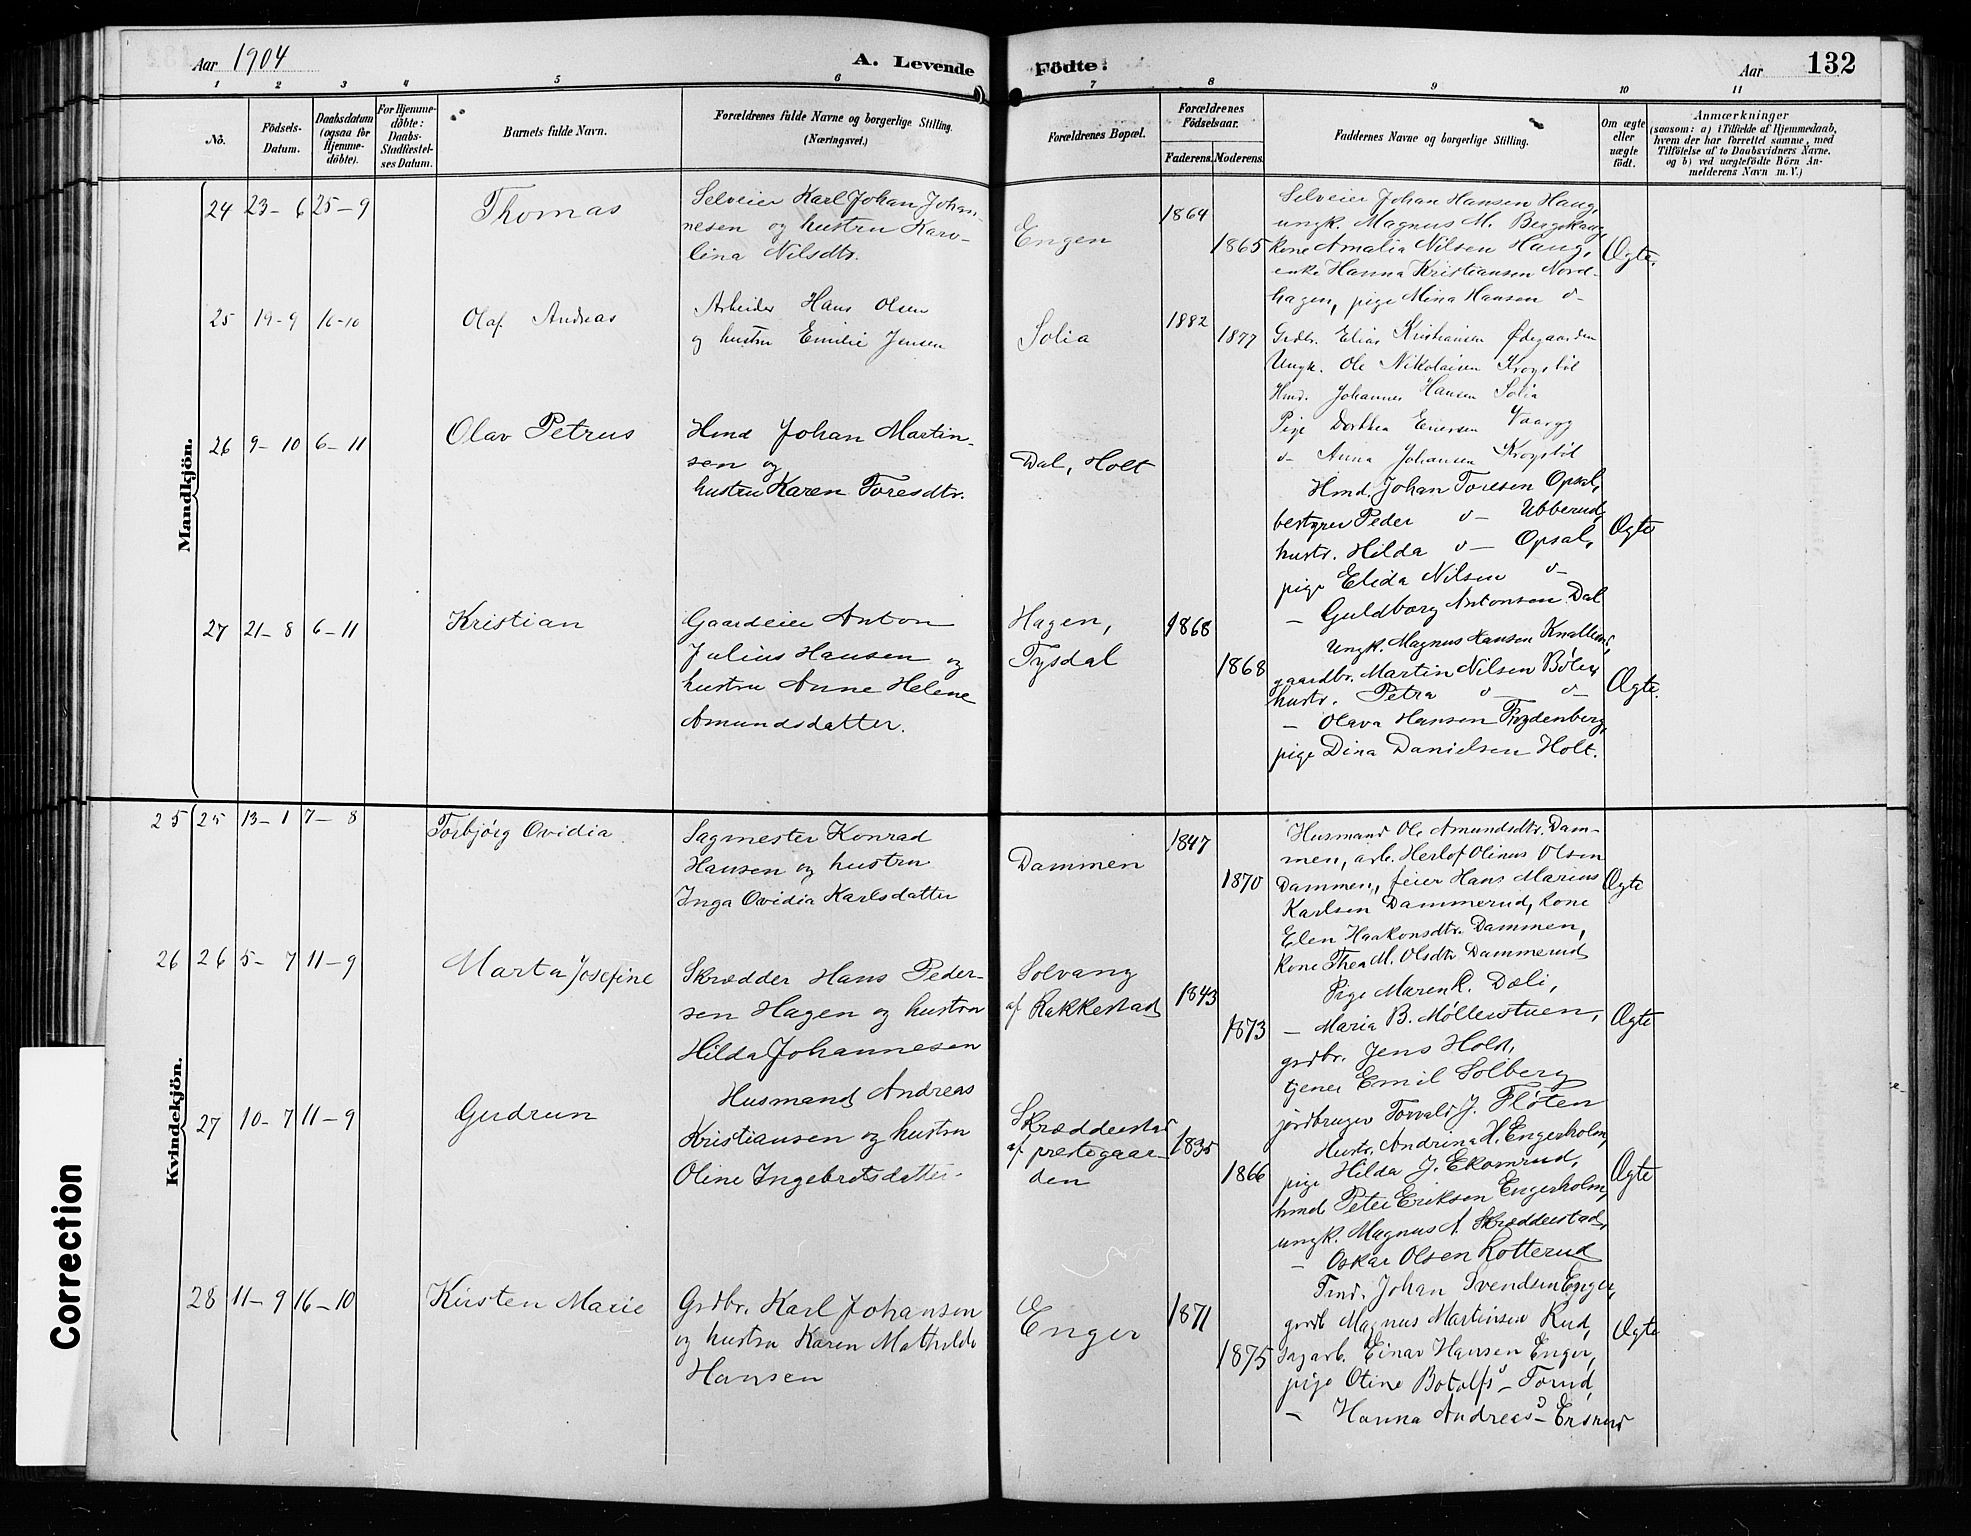 Aar 1904
A. Levende
Födte:
Aar
132
1 2 3 4 5 6 7 8 9 10 11
No.
Födsels-
Datum.
Daabsdatum
(ogsaa for
Hjemme-
döbte).
For Hjemme-
döbte:
Daabs-
Stadfæstel-
ses Datum.
Barnets fulde Navn.
Forældrenes fulde Navne og borgerlige Stilling.
(Næringsvei.)
Forældrenes Bopæl.
Forældrenes
Födselsaar.
Faderens. Moderens.
Faddernes Navne og borgerlige Stilling.
Om ægte
eller
uægte
födt.
Anmærkninger
(saasom: a) i Tilfælde af Hjemmedaab,
hvem der har forrettet samme, med
Tilföielse af to Daabsvidners Navne,
og b) ved uægtefödte Börn An-
melderens Navn m. V.)
Mandkjön.
24 23-6 25-9
Thomas
Selveier Karl Johan Johan-
nesen og hustru Karo-
lina Nilsdtr.
Engen
1864
1865
Selveier Johan Hansen Haug,
ungk. Magnus M. Bergshaug,
kone Amalia Nilsen Haug,
enke Hanna Kristiansen Nord-
hagen, pige Mina Hansen d-
Ægte.
25 19-9 16-10
Olaf Andreas
Arbeider Hans Olsen
og hustru Emilie Jensen
Solia
1882
1877
Grdbr. Elias Kristiansen Ødegaarden
Ungk. Ole Nikolaisen Krogstöl
Hmd. Johannes Hansen Solia
Pige Dorthea Enersen
d- Anna Johansen Krogstöl
26 9-10 6-11
Olav Petrus
Hmd Johan Martin-
sen og
hustru Karen Toresdtr.
Dal, Holt
Hmd. Johan Toresen Opsal,
bestyrer Peder d- Ubberud,
hustr. Hilda d- Opsal,
pige Elida Nilsen d-
- Guldborg Antonsen Dal
Ægte
27 21-8 6-11
Kristian
Gaardeier Anton
Julius Hansen og
hustru Anne Helene
Amundsdatter.
Hagen,
Tysdal
1868
1868
Ungk. Magnus Hansen
gaardbr. Martin Nilsen Bøler
hustr. Petra d- d-
- Olava Hansen Frydenberg,
pige Dina Danielsen Holt.
Ægte.
Kvindekjön.
25 25 13-1 7-8
Torbjørg Ovidia
Sagmester Konrad
Hansen og hustru
Inga Ovidia Karlsdatter
Dammen
1847
1870
Husmand Ole Amundsdtr. Dam-
men, arb. Herlof Olinus Olsen
Dammen, feier Hans Marius
Karlsen Dammerud, kone
Elen Haakonsdtr. Dammen,
kone Thea M. Olsdtr Dammerud
Ægte
26 26 5-7 11-9
Marta Josefine
Skrædder Hans Peder-
sen Hagen og hustru
Hilda Johannesen
Solvang
af Rakkestad
1843
1873
Pige Maren K. Dæli,
- Maria B. Møllerstuen,
grdbr. Jens Hold,
tjener Emil Solberg
jordbruger Torvald J. Fløten
Ægte
27 10-7 11-9
Gudrun
Husmand Andreas
Kristiansen og hustru
Oline Ingebretsdatter.
Skrædderstad
af prestegaar-
den
1835
1866
Hustr. Andrina H. Engerholm,
pige Hilda J. Ekornrud,
hmd Peter Eriksen Engerholm,
ungk. Magnus A. Skrædderstad,
- Oskar Olsen Kotterud
Ægte
28 11-9 16-10
Kirsten Marie
Grdbr. Karl Johansen
og hustru Karen Mathilde
Hansen
Enger
1871
1875
Tmd. Johan Svendsen Enger,
grdb Magnus Martinsen Rud,
sagarb. Einar Hansen Enger,
pige Otine Botolfsd- Torud,
- Hanna Andreasd-
Ægte
Correction